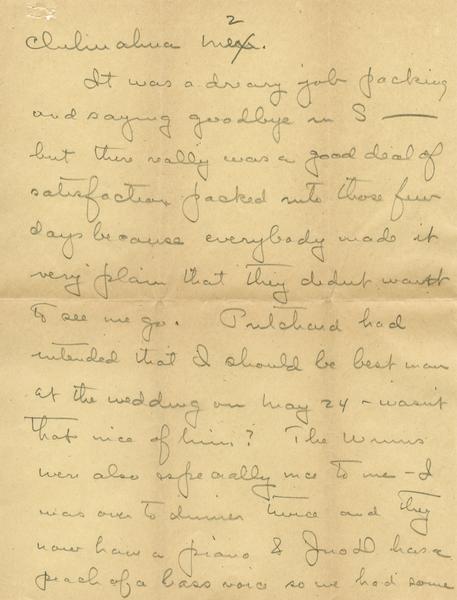 2
Chihuahua Mex.
It was a dreary job packing
and saying goodbye in S —
but there really was a good deal of
satisfaction packed into those few
days because everybody made it
very plain that they didn't want
to see me go. Pritchard had
intended that I should be best man
at the wedding on May 24 - wasn't
that nice of him? The
were also especially nice to me - I
was over to dinner twice and they
now have a piano & has a
peach of a bass voice so we had some